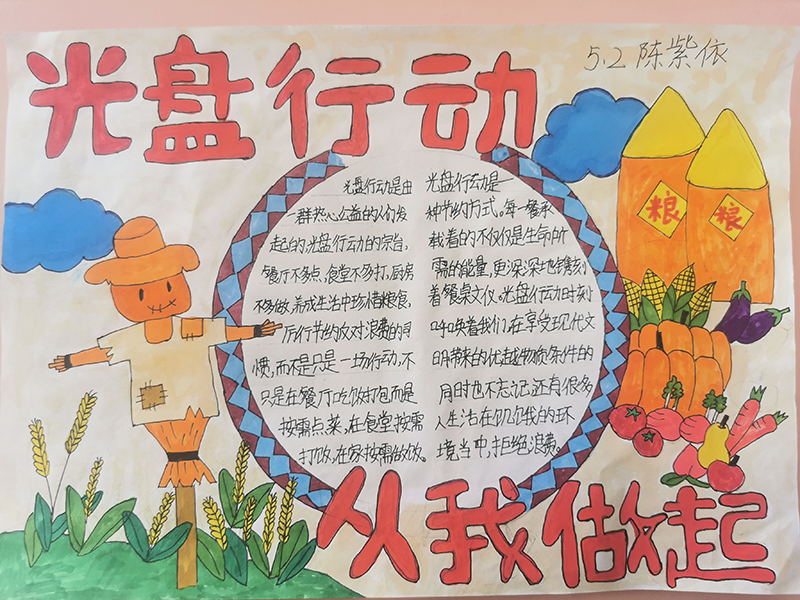 光盘行动
5.2 陈紫依
粮
粮
光盘行动是由
一群热心公益的人们发
起的,光盘行动的宗旨,
餐厅不多点,食堂不多打,厨房
不多做,养成生活中珍惜粮食,
厉行节约反对浪费的习
惯,而不是只是一场行动,不
只是在餐厅吃饭打包而是
按需点菜,在食堂按需
打饭,在家按需做饭。
光盘行动是一
种节约方式。每一餐承
载着的不仅仅是生命所
需的能量,更深深地镌刻
着餐桌文仪。光盘行动时刻
呼唤着我们,在享受现代文
明带来的优越物质条件的
同时也不忘记还有很多
人生活在饥饥我的环
境当中,拒绝浪费。
从我做起